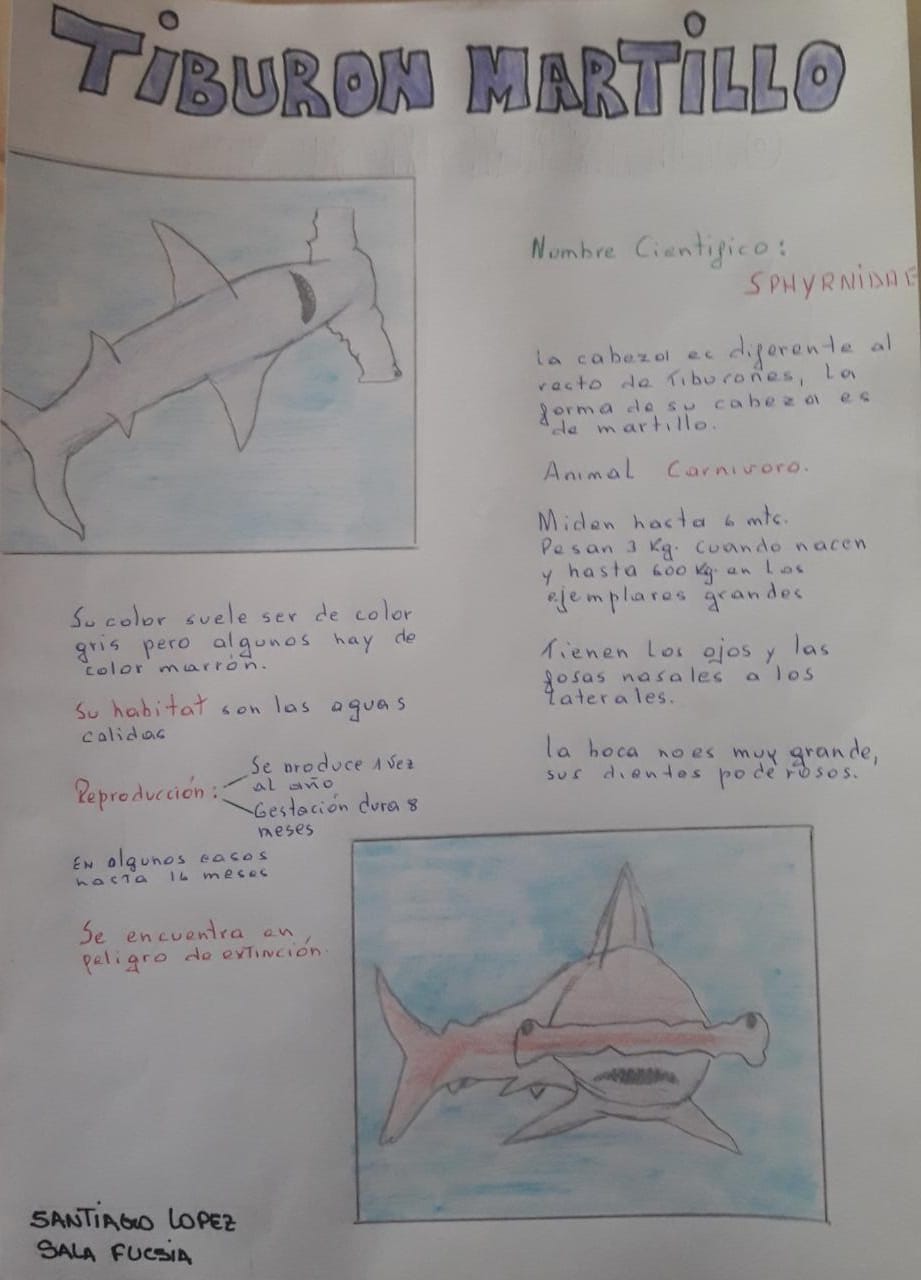 TIBURON MARTILLO
Nombre Cientifico:
SPHYRNIDAE
la cabeza es diferente al
resto de Tiburones, La
forma de su cabeza es
de martillo.
Animal Carnivoro.
Miden hasta 6 mts.
Pesan 3 Kg. cuando nacen
y hasta 600 Kg. en los
ejemplares grandes
Tienen Los ojos y las
fosas nasales a los
laterales.
la boca no es muy grande,
sus dientes poderosos.
Su color suele ser de color
gris pero algunos hay de
color marrón.
Su habitat son las aguas
calidas
Reproducción:
Se produce 1 vez
al año
Gestación dura 8
meses
EN algunos casos
hasta 16 meses
Se encuentra en
peligro de extinción.
SANTIAGO LOPEZ
SALA FUCSIA